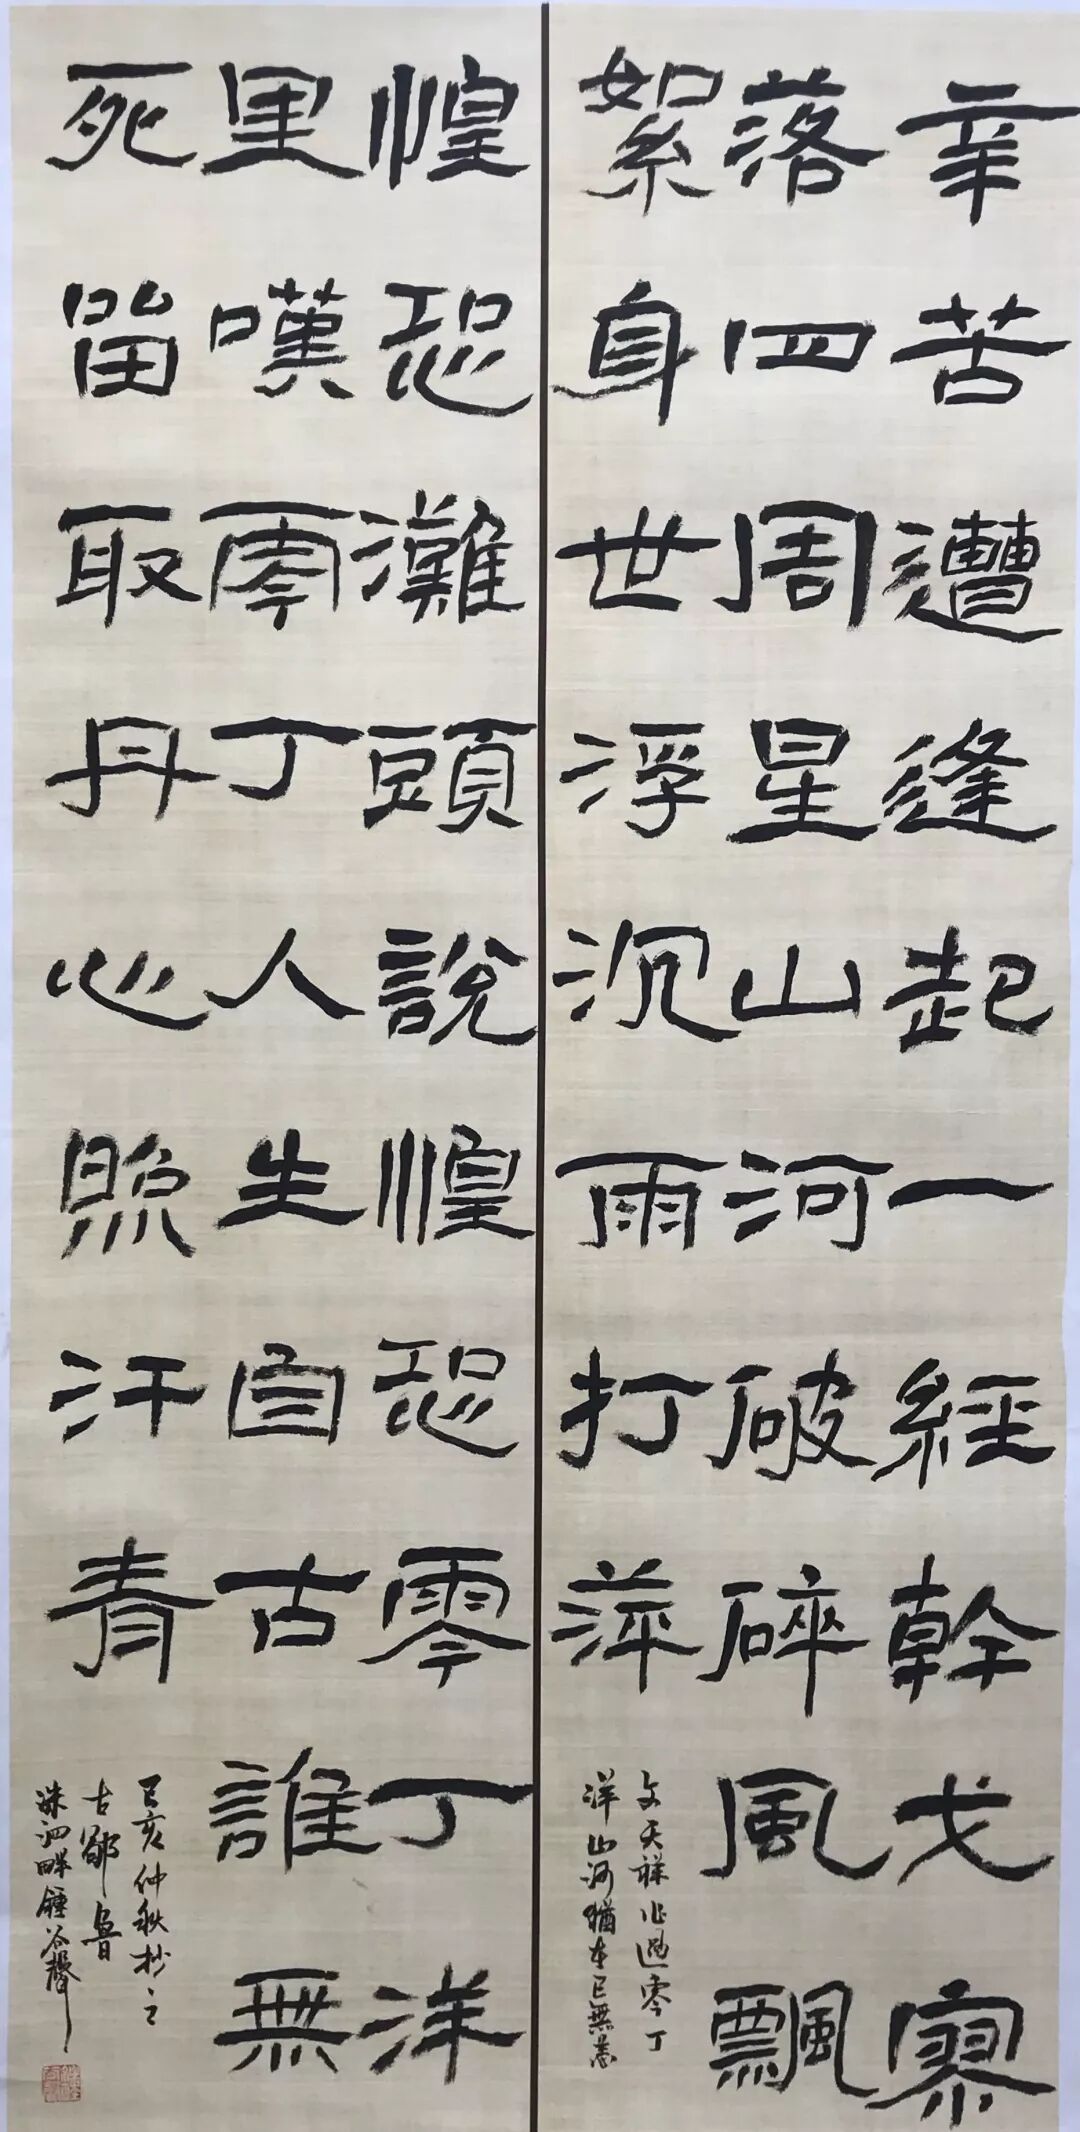 辛苦遭逢起一經幹戈寥
落四周星山河破碎風飄
絮身世浮沉雨打萍
文天祥作過零丁
洋山河猶在已無恙
惶恐灘頭說惶恐零丁洋
里嘆零丁人生自古誰無
死留取丹心照汗青
己亥仲秋抄之
古鄒魯
洙泗畔鍾谷聲